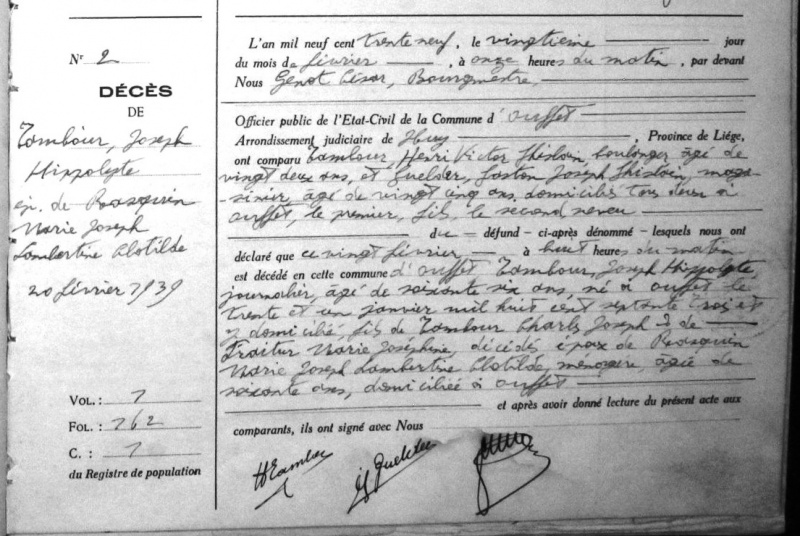 Nr 2
DÉCÈS
DE
Tambour, Joseph
Hippolyte
ép. de Rasquin
Marie Joseph
Lambertine Clotilde
20 février 1939
VOL. : 1
FOL. : 162
C. : 1
du Registre de population
L'an mil neuf cent trente neuf, le vingtième jour
du mois de février, à onze heures du matin, par devant
Nous Genot César, Bourgmestre,
Officier public de l'Etat-Civil de la Commune d'Ouffet
Arrondissement judiciaire de Huy, Province de Liége,
ont comparu Tambour, Henri Victor Ghislain, boulanger âgé de
vingt deux ans, et Guelder, Gaston Joseph Ghislain, maga-
sinier, âgé de vingt cinq ans, domiciliés tous deux à
Ouffet, le premier, fils, le second neveu
du – défund – ci-après dénommé – lesquels nous ont
déclaré que ce vingt février à huit heures du matin
est décédé en cette commune d'Ouffet Tambour, Joseph Hippolyte
journalier, âgé de soixante six ans, né à Ouffet le
trente et un janvier mil huit cent septante trois et
y domicilié, fils de Tambour Charles Joseph & de
Traitur Marie Joséphine, décédés, époux de Rasquin
Marie Joseph Lambertine Clotilde, ménagère, âgée de
soixante ans, domiciliée à Ouffet
et après avoir donné lecture du présent acte aux
comparants, ils ont signé avec Nous
HTambour
G Guelder